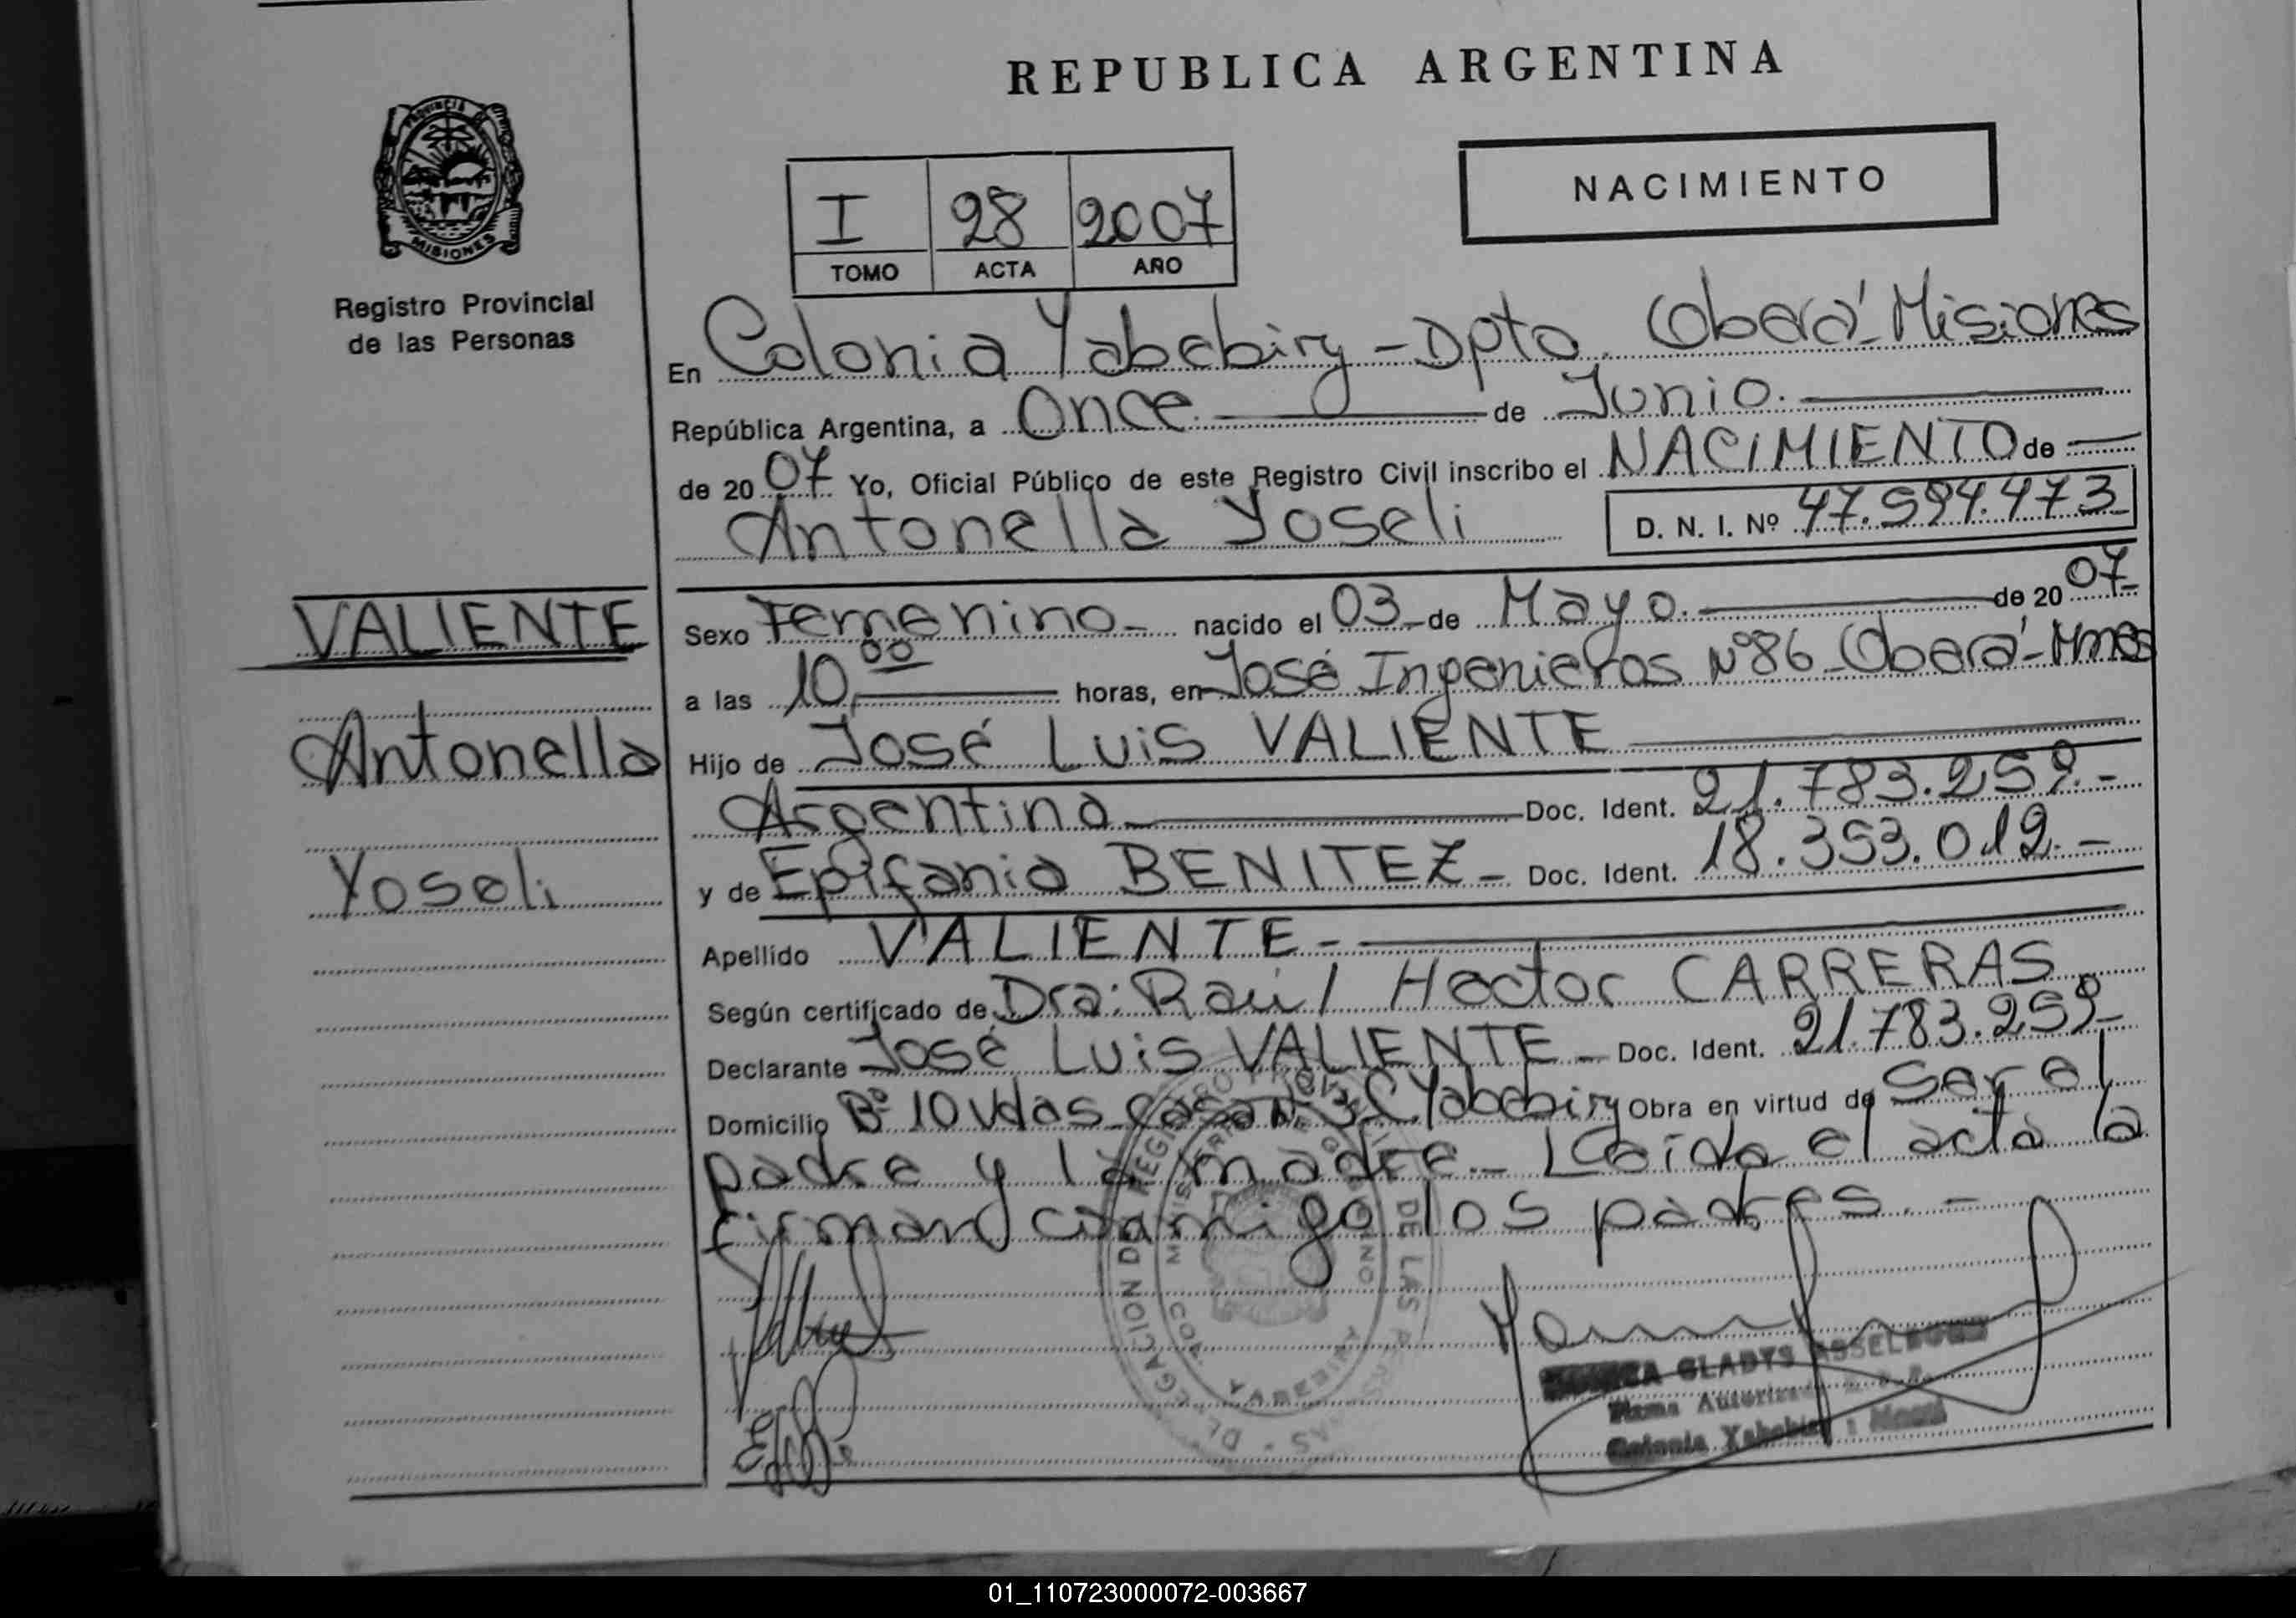 REPUBLICA ARGENTINA
PROVINCIA
MISIONES
Registro Provincial
de las Personas
I 28 2007
TOMO ACTA AÑO
NACIMIENTO
En Colonia Yabebiry - Dpto. Oberá - Misiones
República Argentina, a Once. de Junio.
de 20 07 Yo, Oficial Público de este Registro Civil inscribo el NACIMIENTO de
Antonella Yoseli D. N. I. Nº 47.594.473
VALIENTE
Antonella
Yoseli
Sexo Femenino - nacido el 03 - de Mayo. de 20 07 -
a las 10,00 horas, en José Ingenieros Nº 86 - Oberá - Mnes
Hijo de José Luis VALIENTE
Argentina Doc. Ident. 21.783.259.-
y de Epifania BENITEZ - Doc. Ident. 18.353.012.-
Apellido VALIENTE -
Según certificado de Dra: Raúl Hector CARRERAS.
Declarante José Luis VALIENTE - Doc. Ident. 21.783.259-
Domicilio Bº 10 Vdas casa Nº 3 C. Yabebiry Obra en virtud de Ser el
padre y la madre - Leída el acta la
firman conmigo los padres. -
DELEGACION DE REGISTRO DE LAS PERSONAS
YABEBIRY
GLADYS
Firma
Colonia Yabebiry
01_110723000072-003667